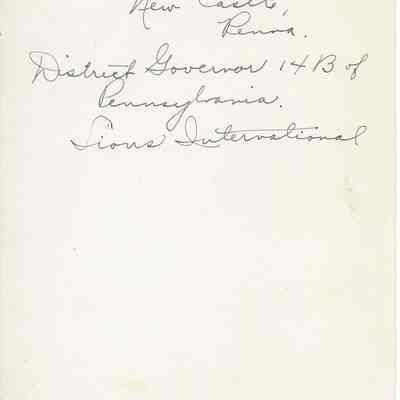 New Castle,
Penna.
District Governor 14 B of
Pennsylvania.
Lions International